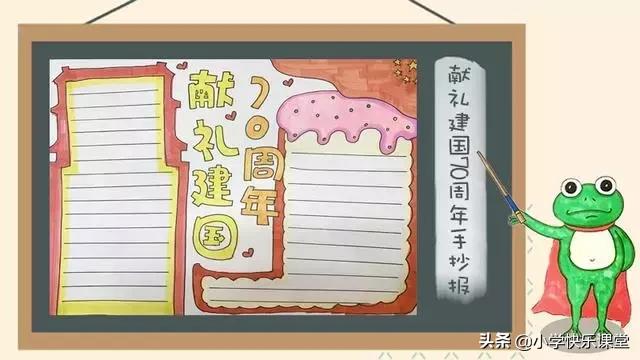 献礼建国
70周年
献礼建国70周年手抄报
头条 @小学快乐课堂